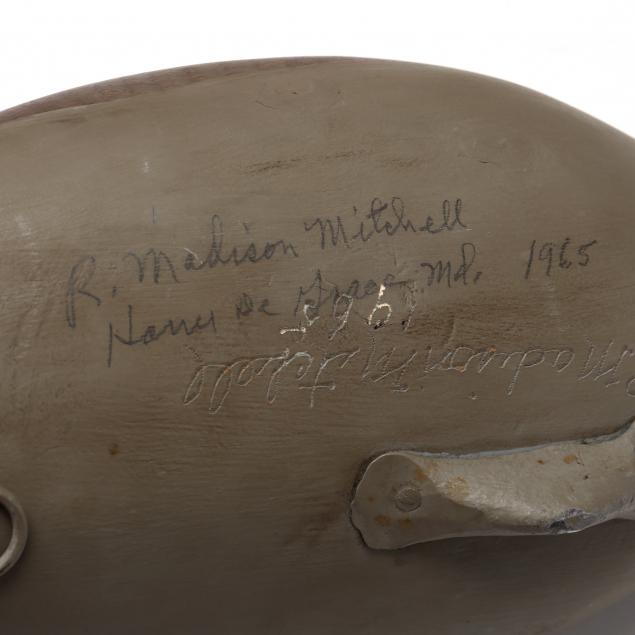 R. Madison Mitchell
Harve De Grace, Md. 1965
R. Madison Mitchell
1965